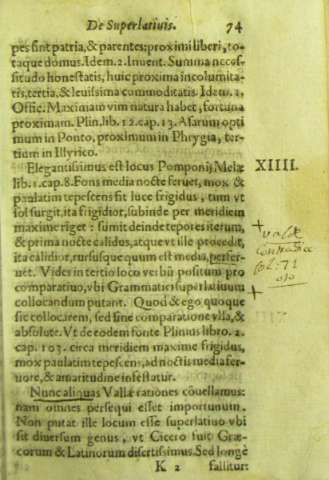 De Superlatiuis. 74
pes sint patria, & parentes: proximi liberi, to-
taque domus. Idem. 2. Inuent. Summa neces-
situdo honestatis, huic proxima incolumita-
tis, tertia, & leuissima commoditatis. Idem. 2.
Offic. Maximam vim natura habet, fortuna
proximam. Plin. lib. 12. cap. 13. Asarum opti
mum in Ponto, proximum in Phrygia, ter-
tium in Illyrico.
Elegantissimus est locus Pomponij Melæ XIIII.
lib. 1. cap. 8. Fons media nocte feruet, mox &
paulatim tepescens fit luce frigidus, tum vt
sol surgit, ita frigidior, subinde per meridiem
maxime riget: sumit deinde tepores iterum,
& prima nocte calidus, atque vt ille procedit,
ita calidior, rursusque quum est media, perfer-
uet. Vides in tertio loco verbū positum pro
comparatiuo, vbi Grammatici superlatiuum
collocandum putant. Quod & ego quoque
sic collocarem, sed sine comparatione vlla, &
absolute. Vt de eodem fonte Plinius libro. 2.
cap. 103. circa meridiem maxime frigidus,
mox paulatim tepescens, ad noctis media fer-
uore, & amaritudine infestatur.
Nunc aliquas Vallæ rationes cōuellamus:
nam omnes persequi esset importunum.
Non putat ille locum esse superlatiuo vbi
sit diuersum genus, vt Cicero fuit Græ-
corum & Latinorum disertissimus. Sed longè
K 2 fallitur:
valde
contraria
fol. 71